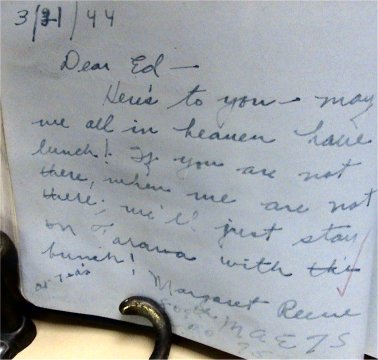 Dear Ed —
Here's to you — may
we all in heaven have
lunch! If you are not
there, when we are not
there, we'll just stay
on Tarawa with this
bunch!
Margaret
M A E T S